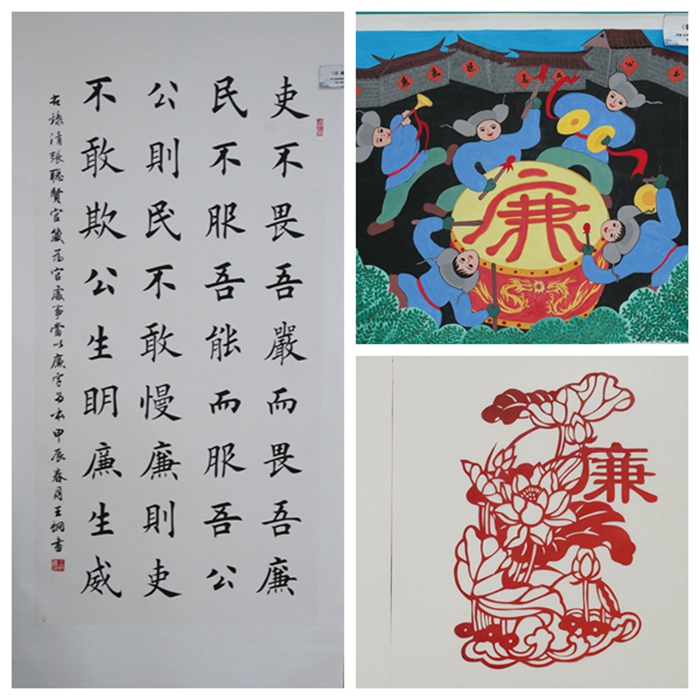 吏不畏吾嚴而畏吾廉
民不服吾能而服吾公
公則民不敢慢廉則吏
不敢欺公生明廉生威
右錄清張聰賢官箴為官處事當以廉字為本甲辰春月王炯書
廉
廉